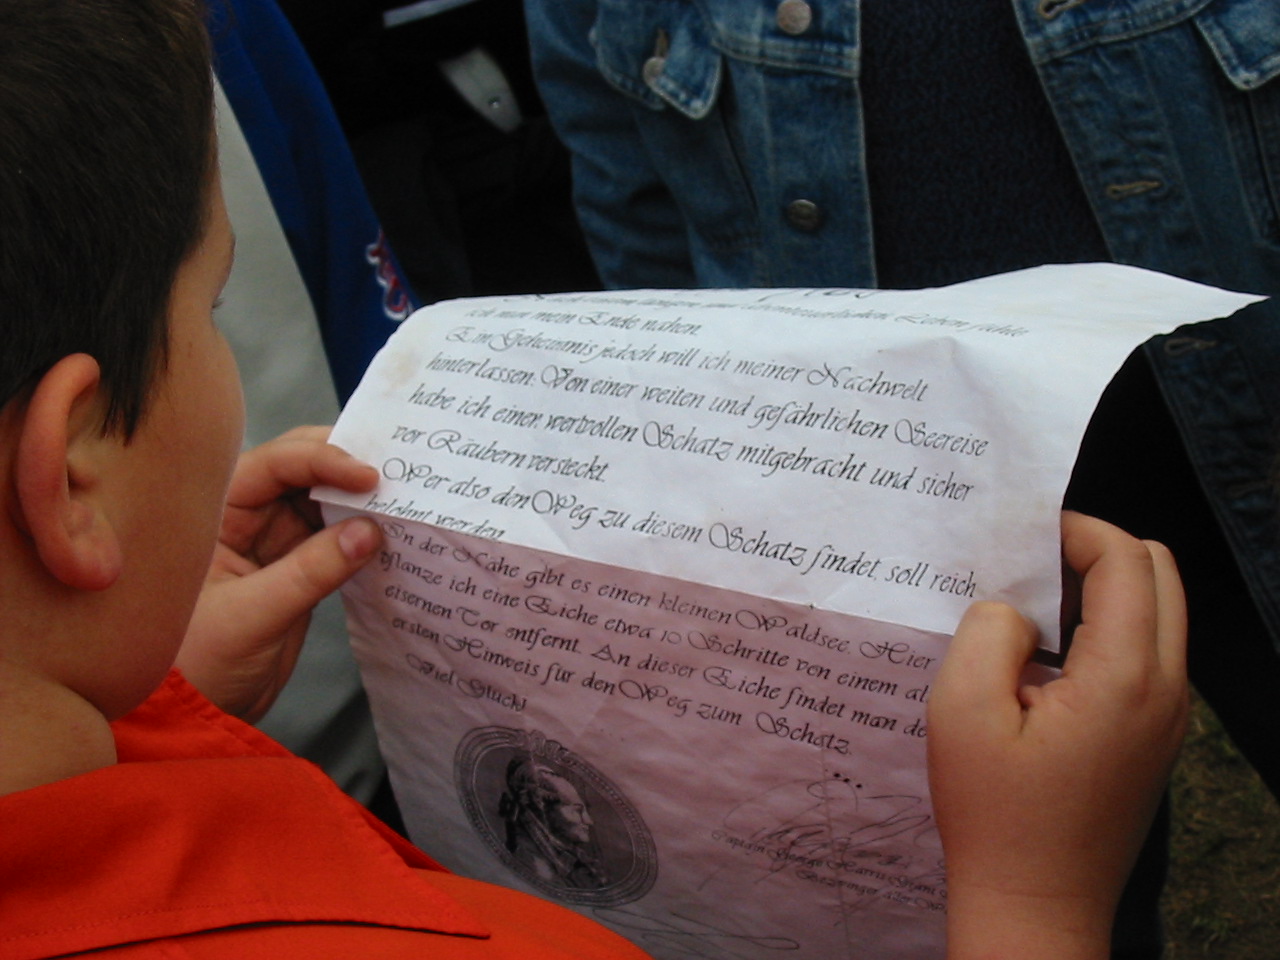 Nach einem langen und abenteuerlichen Leben fühle
ich nun mein Ende nahen.
Ein Geheimnis jedoch will ich meiner Nachwelt
hinterlassen: Von einer weiten und gefährlichen Seereise
habe ich einen wertvollen Schatz mitgebracht und sicher
vor Räubern versteckt.
Wer also den Weg zu diesem Schatz findet, soll reich
belohnt werden.
In der Nähe gibt es einen kleinen Waldsee. Hier
pflanze ich eine Eiche etwa 10 Schritte von einem al
eisernen Tor entfernt. An dieser Eiche findet man de
ersten Hinweis für den Weg zum Schatz.
Viel Glück!
Captain George Harris
Bezwinger aller